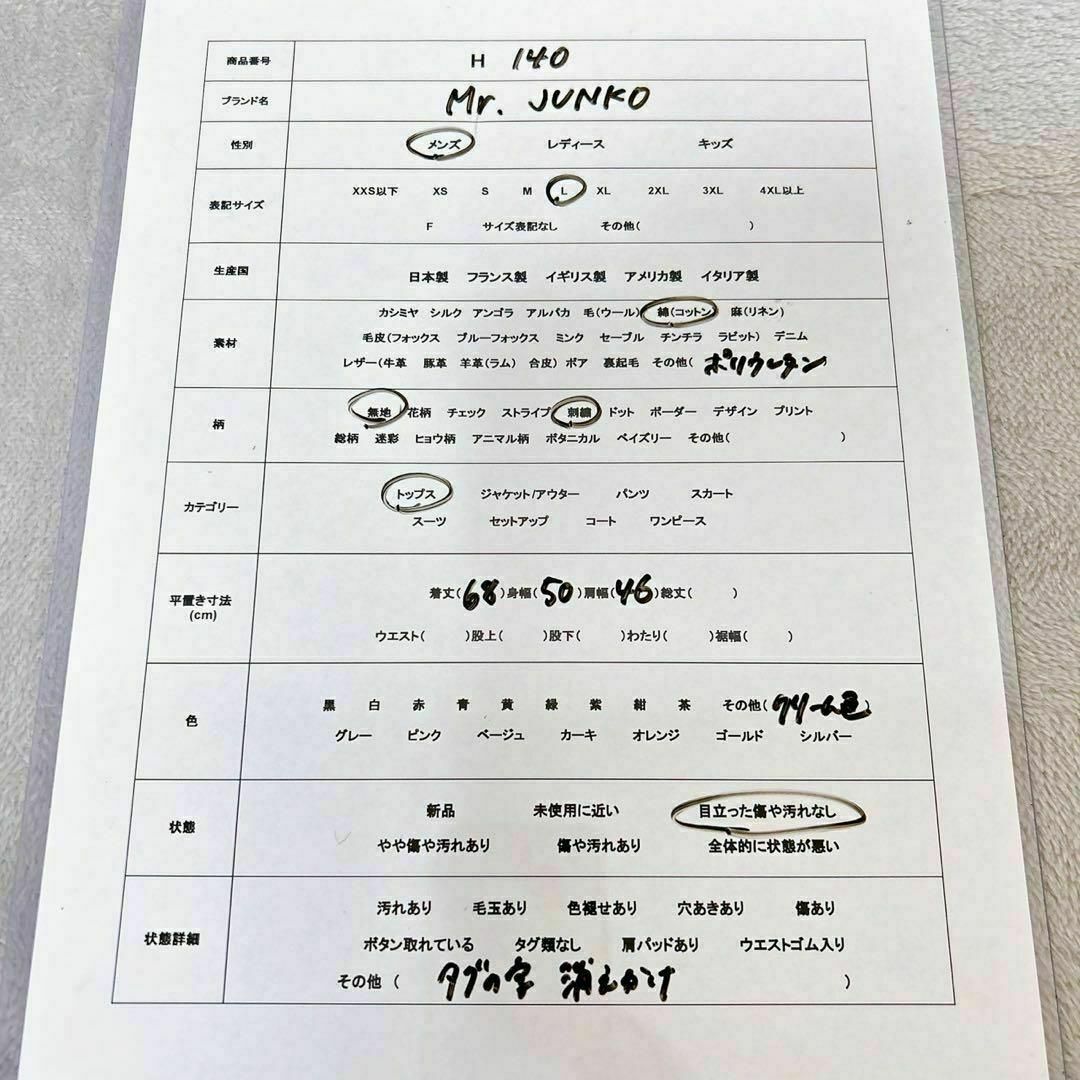 商品番号 H 140
ブランド名 Mr. JUNKO
性別 メンズ レディース キッズ
表記サイズ XXS以下 XS S M L XL 2XL 3XL 4XL以上
F サイズ表記なし その他( )
生産国 日本製 フランス製 イギリス製 アメリカ製 イタリア製
素材 カシミヤ シルク アンゴラ アルパカ 毛(ウール) 綿(コットン) 麻(リネン)
毛皮(フォックス ブルーフォックス ミンク セーブル チンチラ ラビット) デニム
レザー(牛革 豚革 羊革(ラム) 合皮) ボア 裏起毛 その他( ポリウレタン
柄 無地 花柄 チェック ストライプ 刺繍 ドット ボーダー デザイン プリント
総柄 迷彩 ヒョウ柄 アニマル柄 ボタニカル ペイズリー その他( )
カテゴリー トップス ジャケット/アウター パンツ スカート
スーツ セットアップ コート ワンピース
平置き寸法 着丈(68)身幅(50)肩幅(46)総丈( )
(cm) ウエスト( )股上( )股下( )わたり( )裾幅( )
色 黒 白 赤 青 黄 緑 紫 紺 茶 その他(クリーム色
グレー ピンク ベージュ カーキ オレンジ ゴールド シルバー
状態 新品 未使用に近い 目立った傷や汚れなし
やや傷や汚れあり 傷や汚れあり 全体的に状態が悪い
状態詳細 汚れあり 毛玉あり 色褪せあり 穴あきあり 傷あり
ボタン取れている タグ類なし 肩パッドあり ウエストゴム入り
その他 ( タグの字 消えかけ )